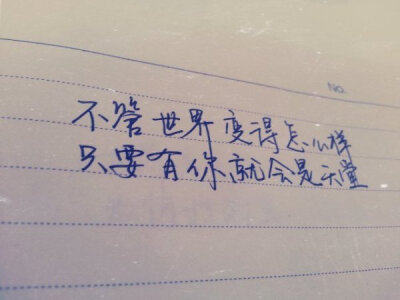 No.
不管世界变得怎么样
只要有你就会是天堂